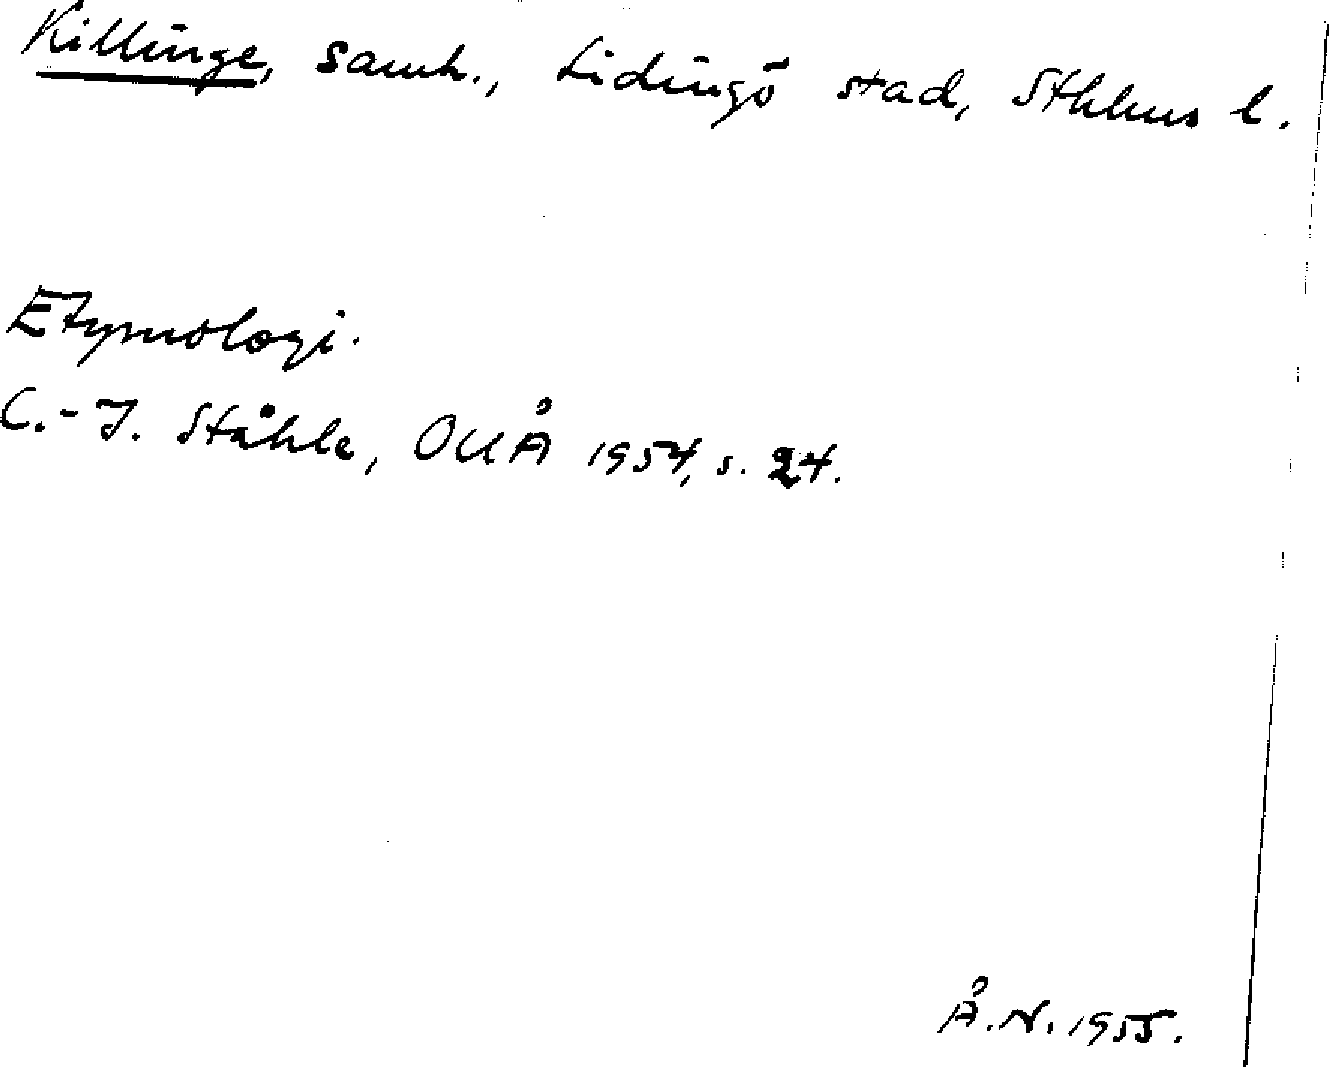 Killinge, samh., Lidingö stad, Sthlms l.
Etymologi.
C.-I. Ståhle, OUÅ 1954, s. 24.
Å.N. 1955.